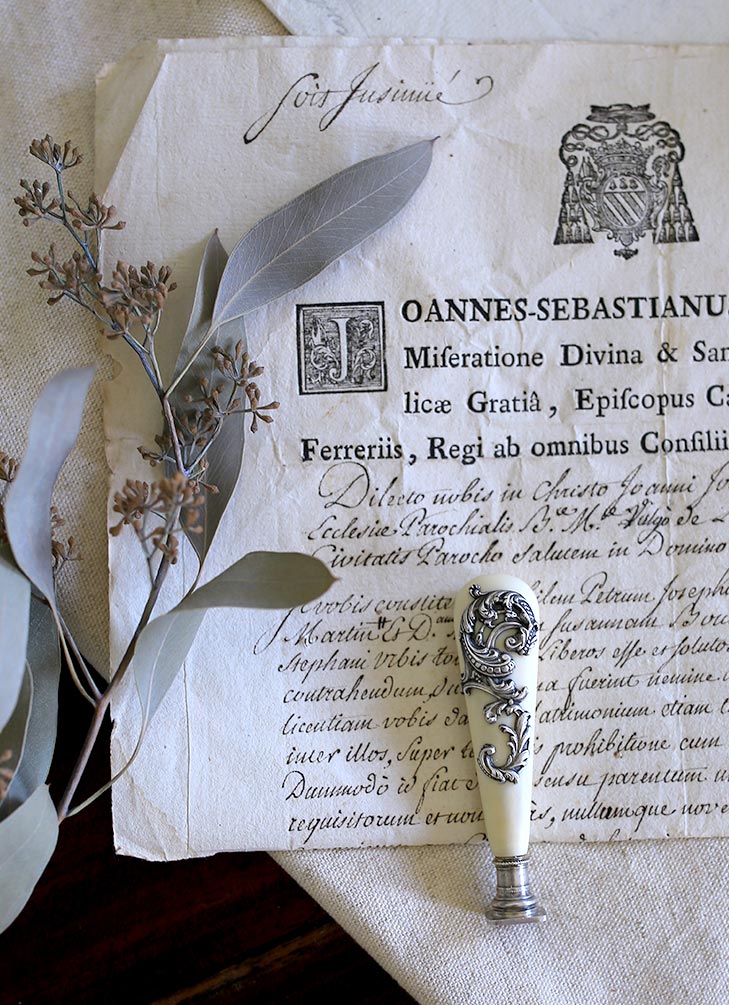 soit Jnsinüé
JOANNES-SEBASTIANUS
Miſeratione Divina & San
licæ Gratiâ, Epiſcopus Ca
Ferreriis, Regi ab omnibus Conſilii
Dilecto nobis in Christo Joanni Jo
Ecclesiæ Parochialis B.æ M.æ Vulgò de
Civitatis Parocho salutem in Domino
vobis constite Petrum Joseph
Martin Et D. Susannam Bou
Stephani vrbis Liberos esse et solutos
contrahendum, fuerint nemine
licentiam vobis da matrimonium etiam
inter illos, super prohibitione cum
Dummodò id fiat sensu parentum
requisitorum et non nullumque nove